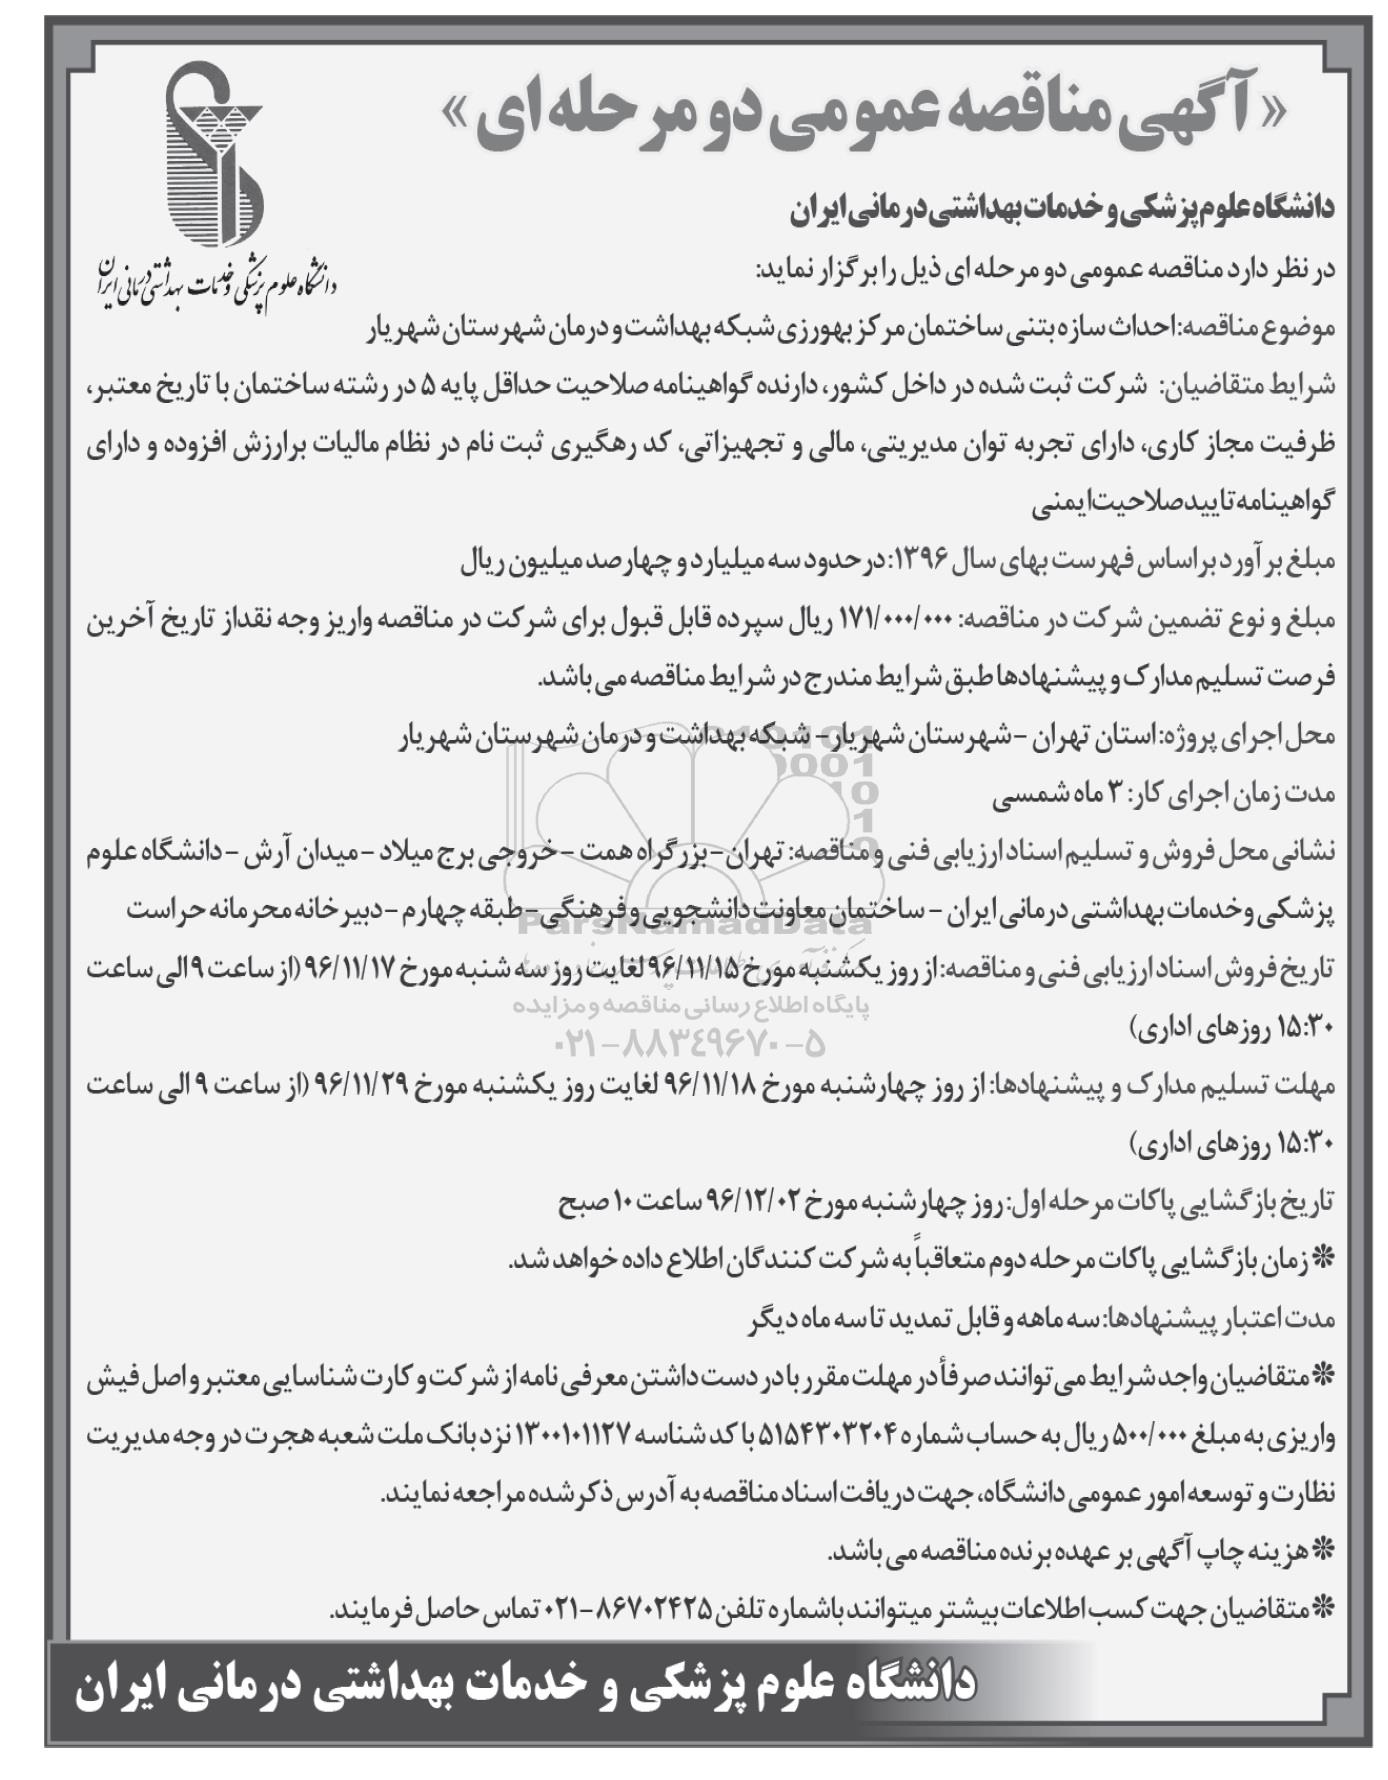 «آگهی مناقصه عمومی دو مرحله ای»
دانشگاه علوم پزشکی و خدمات بهداشتی درمانی ایران
دانشگاه علوم پزشکی و خدمات بهداشتی درمانی ایران
در نظر دارد مناقصه عمومی دو مرحله ای ذیل را برگزار نماید:
موضوع مناقصه: احداث سازه بتنی ساختمان مرکز بهورزی شبکه بهداشت و درمان شهرستان شهریار
شرایط متقاضیان: شرکت ثبت شده در داخل کشور، دارنده گواهینامه صلاحیت حداقل پایه ۵ در رشته ساختمان با تاریخ معتبر،
ظرفیت مجاز کاری، دارای تجربه توان مدیریتی، مالی و تجهیزاتی، کد رهگیری ثبت نام در نظام مالیات برارزش افزوده و دارای
گواهینامه تایید صلاحیت ایمنی
مبلغ برآورد براساس فهرست بهای سال ۱۳۹۶: در حدود سه میلیارد و چهارصد میلیون ریال
مبلغ و نوع تضمین شرکت در مناقصه: ۱۷۱/۰۰۰/۰۰۰ ریال سپرده قابل قبول برای شرکت در مناقصه واریز وجه نقداز تاریخ آخرین
فرصت تسلیم مدارک و پیشنهادها طبق شرایط مندرج در شرایط مناقصه می باشد.
محل اجرای پروژه: استان تهران - شهرستان شهریار- شبکه بهداشت و درمان شهرستان شهریار
مدت زمان اجرای کار: ۳ ماه شمسی
نشانی محل فروش و تسلیم اسناد ارزیابی فنی و مناقصه: تهران - بزرگراه همت - خروجی برج میلاد - میدان آرش - دانشگاه علوم
پزشکی و خدمات بهداشتی درمانی ایران - ساختمان معاونت دانشجویی و فرهنگی - طبقه چهارم - دبیرخانه محرمانه حراست
تاریخ فروش اسناد ارزیابی فنی و مناقصه: از روز یکشنبه مورخ ۹۶/۱۱/۱۵ لغایت روز سه شنبه مورخ ۹۶/۱۱/۱۷ (از ساعت ۹ الی ساعت
۱۵:۳۰ روزهای اداری)
مهلت تسلیم مدارک و پیشنهادها: از روز چهارشنبه مورخ ۹۶/۱۱/۱۸ لغایت روز یکشنبه مورخ ۹۶/۱۱/۲۹ (از ساعت ۹ الی ساعت
۱۵:۳۰ روزهای اداری)
تاریخ بازگشایی پاکات مرحله اول: روز چهارشنبه مورخ ۹۶/۱۲/۰۲ ساعت ۱۰ صبح
❋ زمان بازگشایی پاکات مرحله دوم متعاقباً به شرکت کنندگان اطلاع داده خواهد شد.
مدت اعتبار پیشنهادها: سه ماهه و قابل تمدید تا سه ماه دیگر
❋ متقاضیان واجد شرایط می توانند صرفاً در مهلت مقرر با در دست داشتن معرفی نامه از شرکت و کارت شناسایی معتبر و اصل فیش
واریزی به مبلغ ۵۰۰/۰۰۰ ریال به حساب شماره ۵۱۵۴۳۰۳۲۰۴ با کد شناسه ۱۳۰۰۱۰۱۱۲۷ نزد بانک ملت شعبه هجرت در وجه مدیریت
نظارت و توسعه امور عمومی دانشگاه، جهت دریافت اسناد مناقصه به آدرس ذکر شده مراجعه نمایند.
❋ هزینه چاپ آگهی بر عهده برنده مناقصه می باشد.
❋ متقاضیان جهت کسب اطلاعات بیشتر میتوانند باشماره تلفن ۸۶۷۰۲۴۲۵-۰۲۱ تماس حاصل فرمایند.
دانشگاه علوم پزشکی و خدمات بهداشتی درمانی ایران
ParsNamadData
پایگاه اطلاع رسانی مناقصه و مزایده
۰۲۱-۸۸۳۴۹۶۷۰-۵